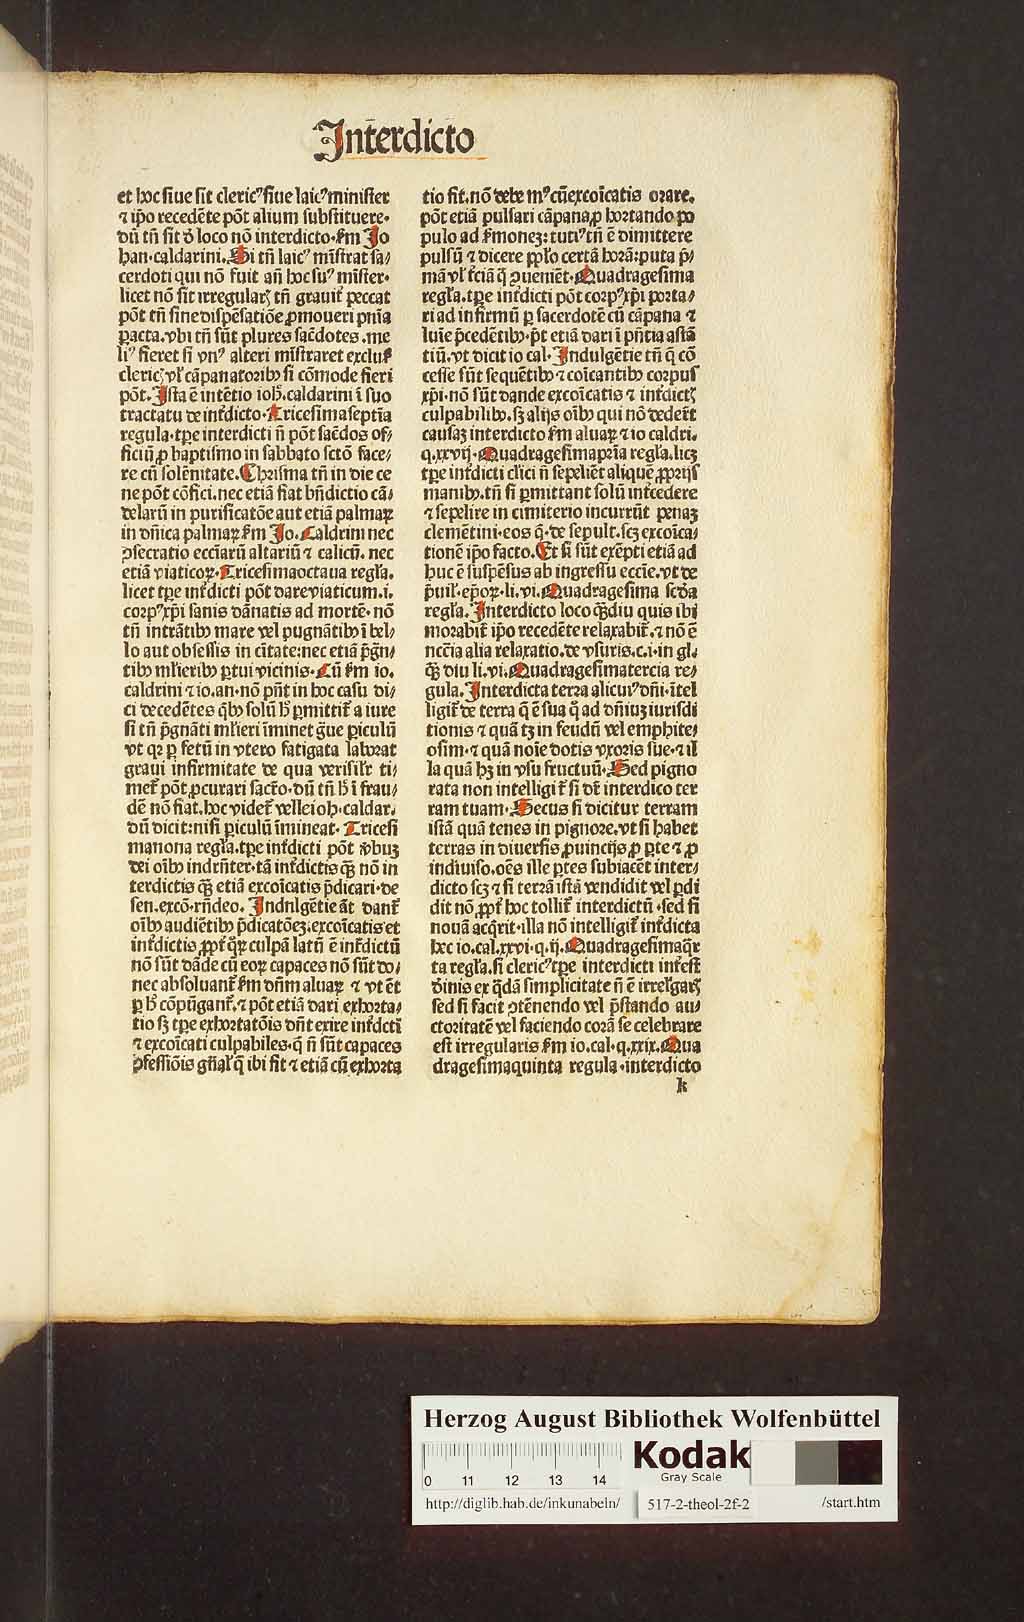 Interdicto
et hoc siue sit clericꝰ siue laicꝰ minister
⁊ ip̄o recedēte pōt alium substituere·
dū tñ sit ī loco nō interdicto·ẜm Jo
han·caldarini. Si tñ laicꝰ mīstrat sa⸗
cerdoti qui nō fuit añ hoc suꝰ mīster·
licet nō sit irregularꝭ tñ grauit̄ peccat
pōt tñ sine dispēsatiōe ꝓmoueri pn̄ia
ꝑacta. vbi tñ sūt plures sac̄dotes. me
liꝰ fieret si vnꝰ alteri mīstraret exclusꝭ
clericꝭ vl̓ cāpanatoribꝰ si cōmode fieri
pōt. Ista ē intētio ioh̄. caldarini ī suo
tractatu de inf̄dicto· Tricesimaseptīa
regula·tꝑe interdicti ñ pōt sac̄dos of⸗
ficiū ꝓ baptismo in sabbato sctō face⸗
re cū solēnitate. Chrisma tñ in die ce
ne pōt cōfici. nec etiā fiat bn̄dictio cā⸗
delarū in purificatōe aut etiā palmaꝝ
in dn̄ica palmaꝝ ẜm Jo. Caldrini nec
ꝯsecratio eccl̓iarū altariū ⁊ calicū. nec
etiā viaticoꝝ. Tricesimaoctaua regl̓a.
licet tꝑe inf̄dicti pōt dare viaticum. i.
corpꝰ xp̄i sanis dānatis ad mortē· nō
tñ intrātibꝰ mare vel pugnātibꝰ ī bel⸗
lo aut obsessis in cītate: nec etiā p̄gn̄⸗
tibꝰ ml̓ieribꝰ ꝑtui vicinis· Cū ẜm io.
caldrini ⁊ io. an· nō pn̄t in hoc casu di⸗
ci decedētes qͥbꝰ solū h̄ ꝑmittit̄ a iure
si tñ p̄gnāti ml̓ieri īminet gͣue ꝑiculū
vt qꝛ ꝑ fetū in vtero fatigata laborat
graui infirmitate de qua verisil̓r ti⸗
met̄ pōt ꝓcurari sacr̄o. dū tñ h̄ ī frau⸗
dē nō fiat. hoc videt̄ velle ioh·caldar.
dū dicit: nisi ꝑiculū īmineat· Tricesi
manona regl̓a. tꝑe inf̄dicti pōt v̄buꝫ
dei oībꝰ indrn̄ter. tā inf̄dictis qͣꝫ nō in
terdictis qͣꝫ etiā excoīcatis p̄dicari·de
sen.excō·rn̄deo. Indnlgētie āt dant̄
oībꝰ audiētibꝰ p̄dicatōeꝫ. excoīcatis et
inf̄dictis ꝓpt̄ qͦꝝ culpā latū ē inf̄dictū
nō sūt dāde cū eoꝝ capaces nō sūt do⸗
nec absoluant̄ ẜm dn̄m aluaꝝ ⁊ vt ēt
ꝑ h̄ cōpūgant̄. ⁊ pōt etiā dari exhorta⸗
tio sꝫ tꝑe exhortatōis dn̄t exire inf̄dcti
⁊ excoīcati culpabiles. qͥ ñ sūt capaces
ꝓfessiōis gn̄al̓ qͥ ibi fit ⁊ etiā cū exhorta
tio fit. nō debꝫ mꝰ cū excoīcatis orare.
pōt etiā pulsari cāpana ꝓ hortando po
pulo ad ẜmoneꝫ: tutiꝰ tñ ē dimittere
pulsū ⁊ dicere ꝓplo certā horā: puta p̄⸗
mā vl̓ t̄ciā qͣ ꝯueniēt. Quadragesima
regl̓a. tꝑe inf̄dicti pōt corpꝰ xp̄i porta⸗
ri ad infirmū ꝑ sacerdotē cū cāpana ⁊
luīe p̄cedētibꝰ. pt̄ etiā dari ī pn̄tia astā
tiū. vt dicit io cal. Indulgētie tñ qͥ cō
cesse sūt sequētibꝰ ⁊ coīcantibꝰ corpus
xp̄i. nō sūt dande excoīcatis ⁊ inf̄dictꝭ
culpabilibꝰ. sꝫ alijs oībꝰ qui nō dedēt
causaꝫ interdicto ẜm aluaꝝ ⁊ io caldri.
q. xxvij. Quadragesimapria regl̓a. licꝫ
tꝑe inf̄dicti cl̓ici ñ sepeliēt aliquē ꝓprijs
manibꝰ. tñ si ꝑmittant solū int̄cedere
⁊ sepelire in cimiterio incurrūt penaꝫ
clemētini. eos q̄. de sepult. scꝫ excoīca⸗
tionē ip̄o facto. Et si sūt exēpti etiā ad
huc ē suspēsus ab ingressu ecc̄ie. vt de
p̄uil̓. ep̄oꝝ. li. vi. Quadragesima scd̄a
regl̓a. Interdicto loco qͣdiu quis ibi
morabit̄ ip̄o recedēte relaxabit̄. ⁊ nō ē
ncc̄ia alia relaxatio. de vsuris. c. i. in gl̓.
qͣꝫ diu li. vi. Quadragesimatercia re⸗
gula. Interdicta terra alicuiꝰ dn̄i. ītel
ligit̄ de terra qͥ ē sua qͦ ad dn̄iuꝫ iurisdi
tionis ⁊ quā tꝫ in feudū vel emphite⸗
osim. ⁊ quā noīe dotis vxoris sue. ⁊ il
la quā hꝫ in vsu fructuū. Sed pigno
rata non intelligit̄ si dt̄ interdico ter
ram tuam. Secus si dicitur terram
istā quā tenes in pignore. vt si habet
terras in diuersis ꝓuincijs ꝓ ꝑte ⁊ ꝓ
indiuiso. oēs ille ꝑtes subiacēt inter⸗
dicto scꝫ ⁊ si terrā istā vendidit vel ꝑdi
dit nō ꝓpt̄ hoc tollit̄ interdictū. sed si
nouā acqͥrit. illa nō intelligit̄ inf̄dicta
hec io. cal. xxvi. q. ij. Quadragesimaqͣr
ta regl̓a. si clericꝰ tꝑe interdicti inf̄est
dīnis ex qͣdā simplicitate ñ ē irregl̓arꝭ
sed si facit ꝯtēnendo vel p̄stando au⸗
ctoritatē vel faciendo corā se celebrare
est irregularis ẜm io. cal. q. xxix. Qua
dragesimaquinta regula. interdicto
k
Herzog August Bibliothek Wolfenbüttel
0 11 12 13 14
Kodak
Gray Scale
http://diglib.hab.de/inkunabeln/ 517-2-theol-2f-2 /start.htm